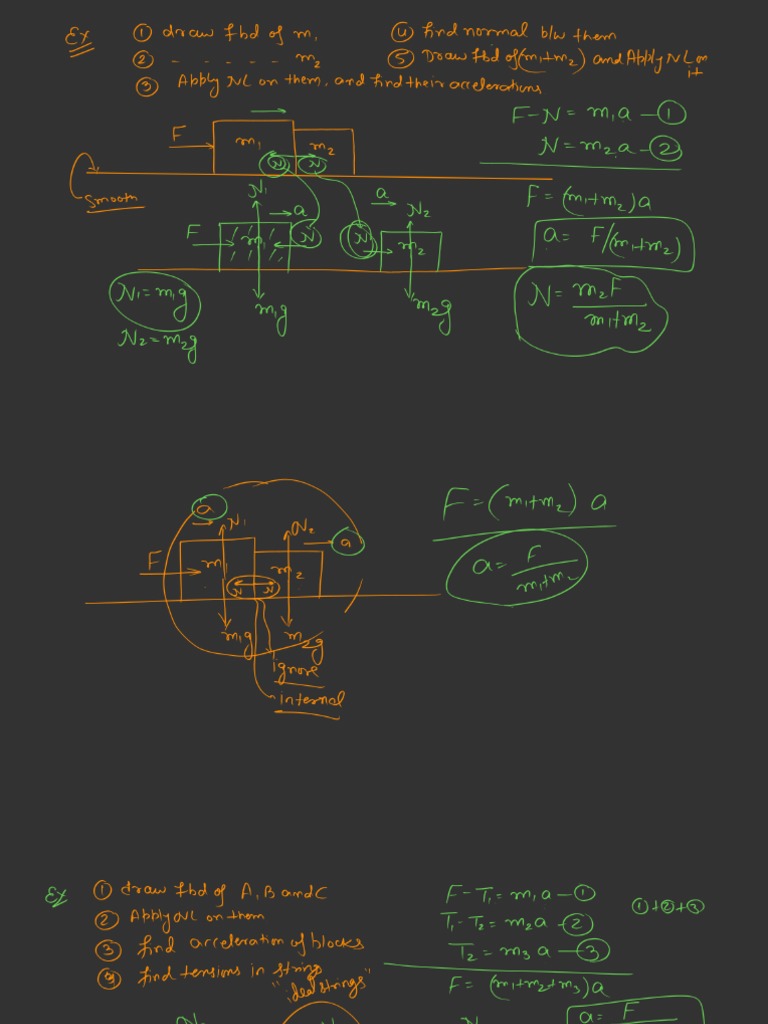 Ex ① draw fbd of m₁ ④ find normal b/w them
② - - - - - m₂ ⑤ Draw fbd of (m₁+m₂) and Apply NL on it
③ Apply NL on them, and find their accelerations
F m₁ m₂ N N
Smooth
F-N = m₁a -①
N = m₂a -②
F = (m₁+m₂)a
a = F/(m₁+m₂)
N = m₂F/(m₁+m₂)
N₁ a a N₂
F m₁ N N m₂
m₁g m₂g
N₁=m₁g
N₂=m₂g
a N₁ N₂ a
F m₁ m₂
N N
m₁g m₂g
ignore
internal
F = (m₁+m₂) a
a = F/(m₁+m₂)
Ex ① draw fbd of A, B and C
② Apply NL on them
③ find acceleration of blocks
④ find tensions in strings
"ideal strings"
F-T₁ = m₁a -①
T₁-T₂ = m₂a -②
T₂ = m₃a -③
①+②+③
F = (m₁+m₂+m₃)a
a = F